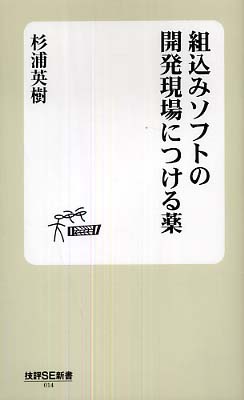 組込みソフトの
開発現場につける薬
杉浦英樹
技評SE新書
014